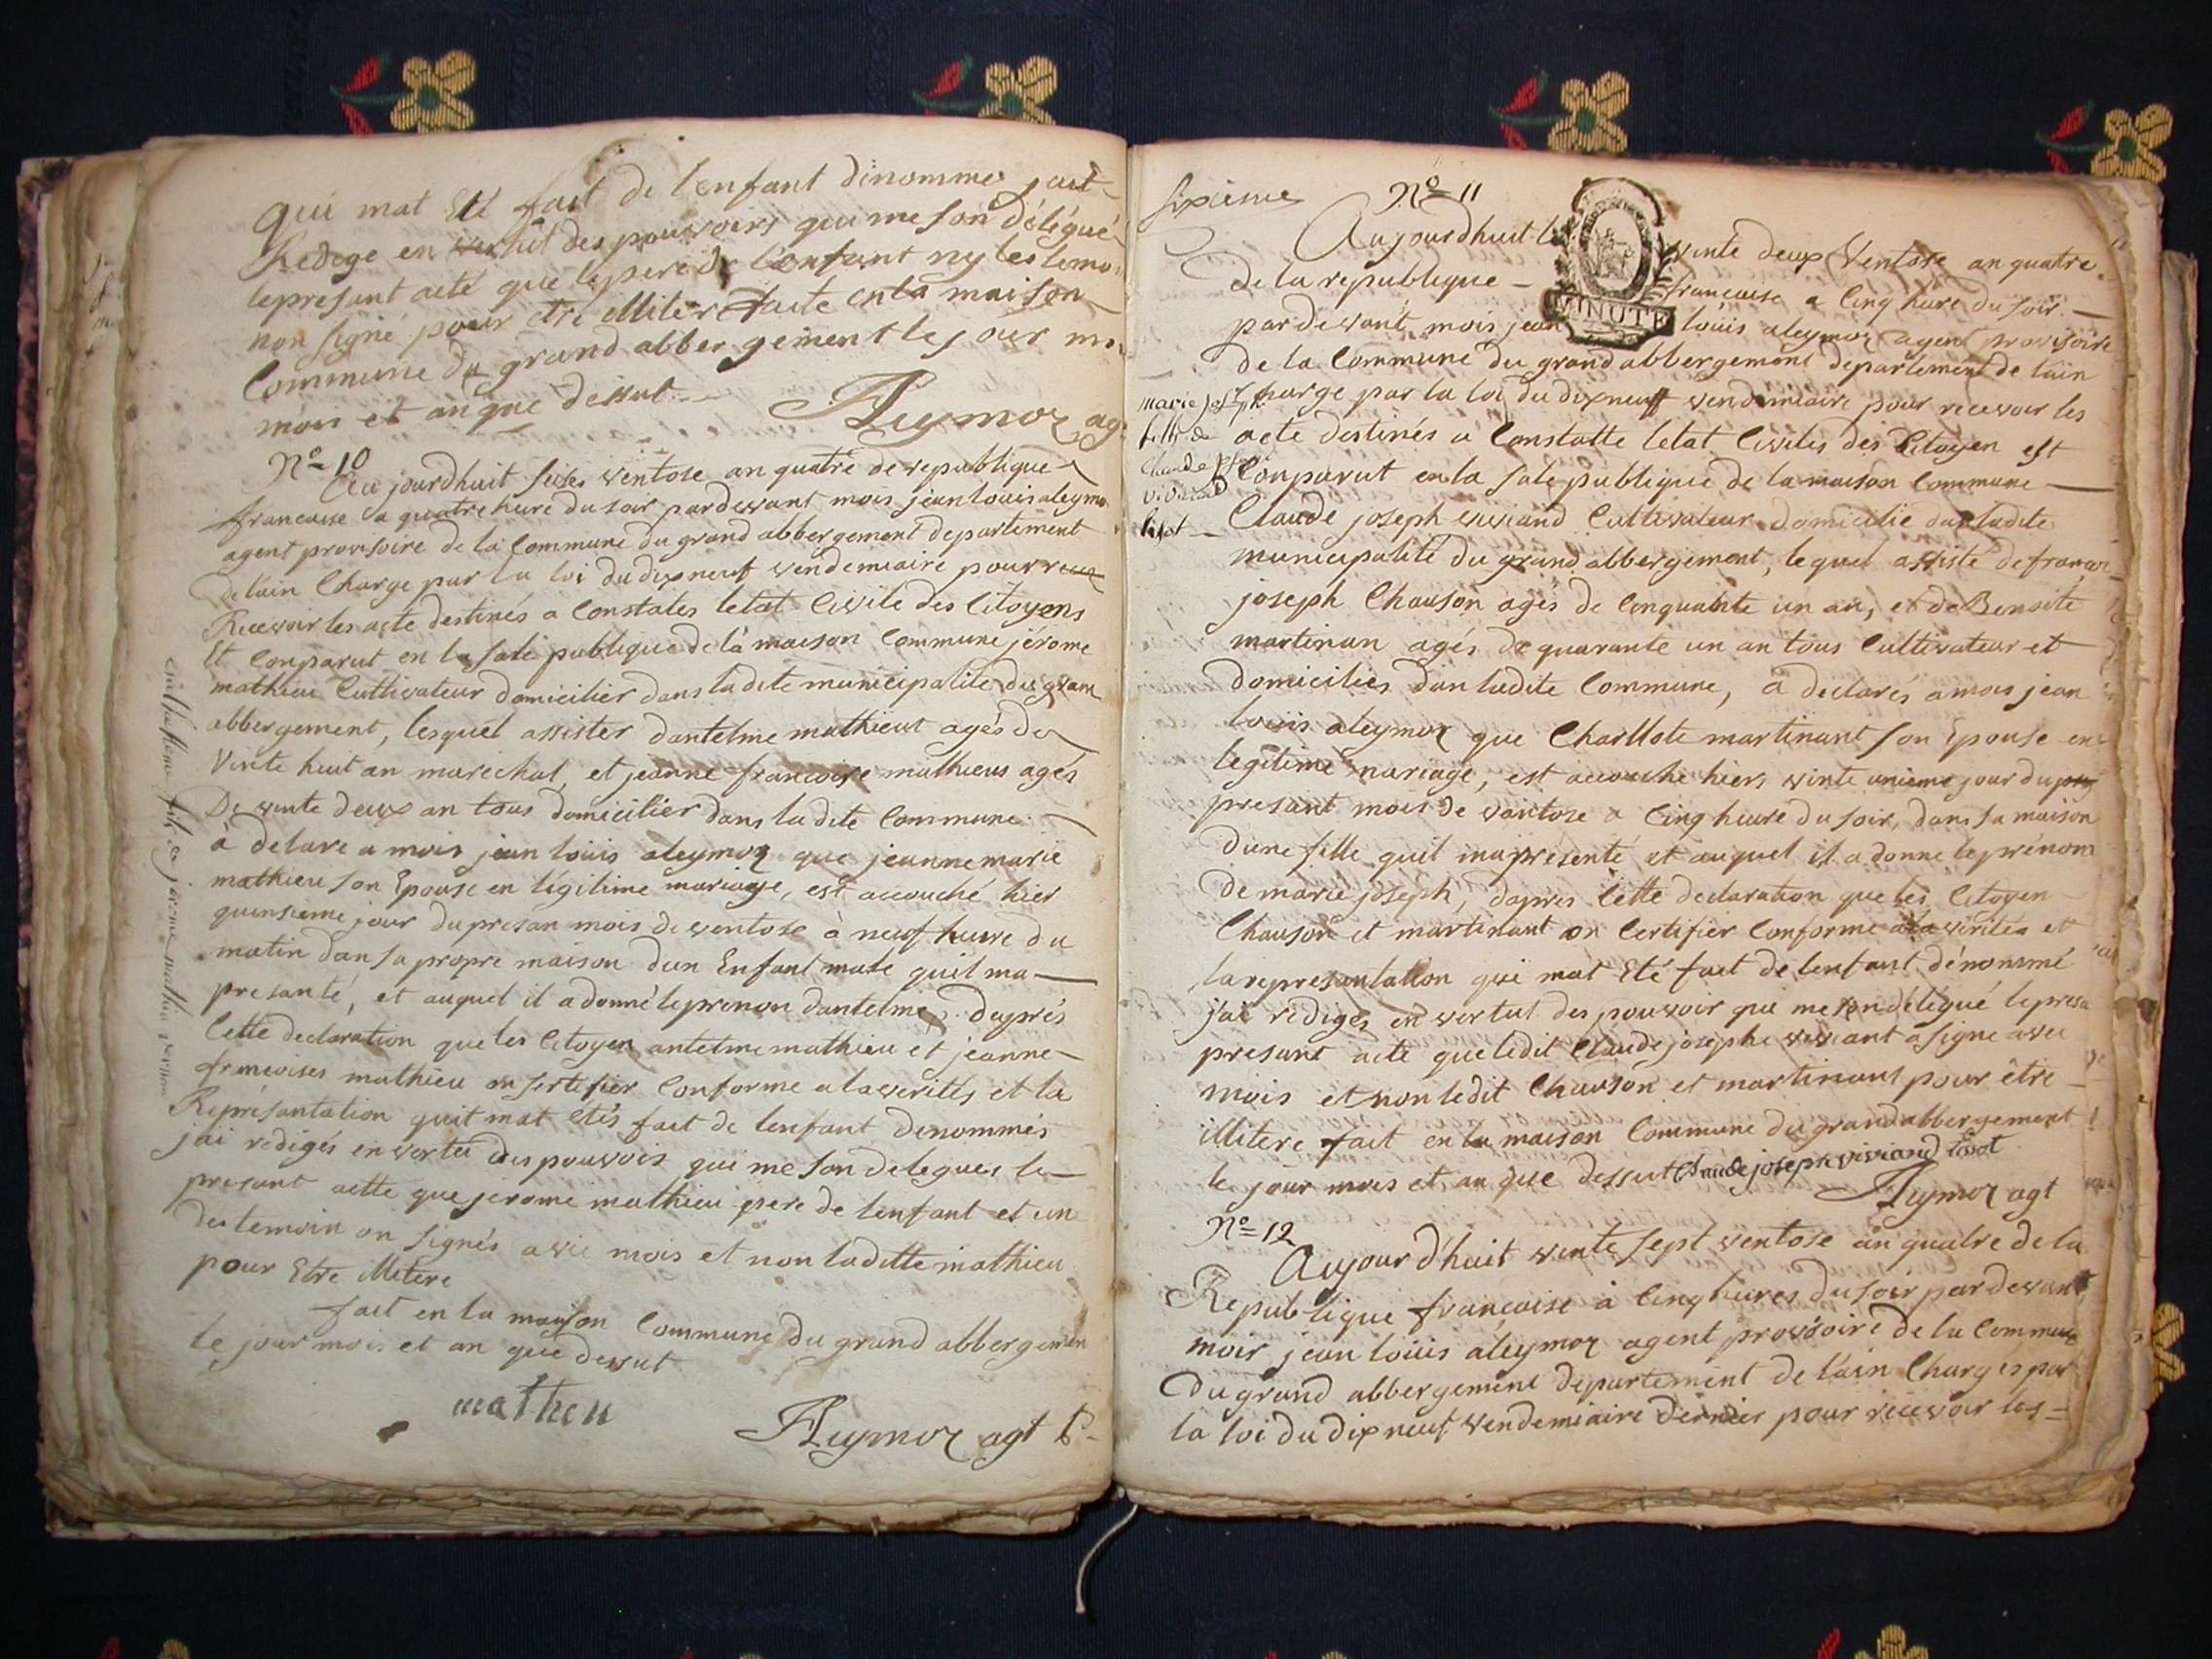 qui mat Eté fait de l'enfant dinommer jait
Redege en vertut des pouvoirs qui me son délégué
le presant acte que le pere de l'enfant ny les temo
non signé pour être illiter faite en la maison
Commune du grand abbergement les our
mois et an que dessut
Aleymoz ag
N° 10
Au jourdhuit seises ventose an quatre de republique
francaise a quatre hure du soir pardevant mois jean louis aleymo
agent provisoire de la Commune du grand abbergement departement
de lain Charge par la loi du dix neuf vendemiaire pour
Recevoir les acte destinés a Constates letat Civile des Citoyens
Et Conparut en la sale publique de la maison Commune jerome
mathieu Cultivateur domicilier dans la dite municipalite du gran
abbergement, lesquel assister dantelme mathieut agés de
Vinte huit an marechal, et jeanne francoise mathieus agés
De vinte deux an tous domicilier dans la dite Commune
à delare a mois jean louis aleymoz que jeanne marie
mathieu son Epouse en légitime mariage, est accouché hier
quinsieme jour du presan mois de ventose à neuf hure du
matin dan sa propre maison dun Enfant male quil ma
presanté, et auquel il a donné le prenon dantelme, daprés
Cette declaration que les Citoyen antelme mathieu et jeanne
francoises mathieu on sertifier Conforme a la verités et la
Représantation quit mat etés fait de lenfant denommés
jai redigés en vertu des pouvois qui me son delegues le
presant actte que jerome mathieu pere de lenfant et un
des temoin on signés avic mois et non la ditte mathieu
pour Etre illitere
fait en la maison Commune du grand abbergemen
le jour mois et an que desut
matheu
Aleymoz agt P
sixieme
N° 11
Aujourdhuit le vinte deux Ventose an quatre
de la republique francaise a Cinq hure du soir
par devant mois jean louis aleymoz agent provisoire
de la Commune du grand abbergement departement de lain
Charge par la loi du dix neuf vendemiaire pour recevoir les
acte destinés a Constatte letat Civiles des Citoyen est
Conparut en la sale publique de la maison Commune
marie joseph
fille de
Claude joseph
viviand
tisot
Claude joseph viviand Cultivateur domicilié dan ladite
municipalité du grand abbergement, lequel assisté de françoi
joseph Chauson agés de Cinquante un an, et de Benoite
martinan agés de quarante un an tous Cultivateur et
domiciliés dan ladite Commune, a declarés a mois jean
louis aleymoz que Charllote martinant son Epouse en
legitime mariage, est accouche hiers vinte unieme jour du
presant mois de vantose a Cinq heure du soir, dans sa maison
dune fille quil ma presenté et auquel il a donne le prénom
de marie joseph, dapres Cette declaration que les Citoyen
Chauson et martinant on Certifier Conforme a la vérités et
la representation qui mat Eté fait de lenfant dénommé
j'ai rédiges en vertut des pouvoir que me son délégué le presa
presant acte que ledit Claude josephe viviant a signe avec
mois et non ledit Chauson et martinant pour être
illitere fait en la maison Commune du grand abbergement
le jour mois et an que dessut Claude joseph viviand tissot
Aleymoz agt
N° 12
Aujourd'huit vinte sept ventose an quatre de la
Republique française à Cinq hures du soir par devant
moir jean louis aleymoz agent provisoire de la Commune
du grand abbergement departement de l'ain Chargés par
la loi du dix neuf vendemiaire dernier pour recevoir les
MINUTE